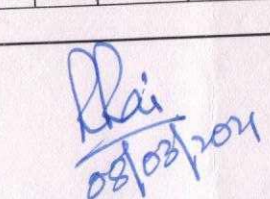 RRai
08/03/2021